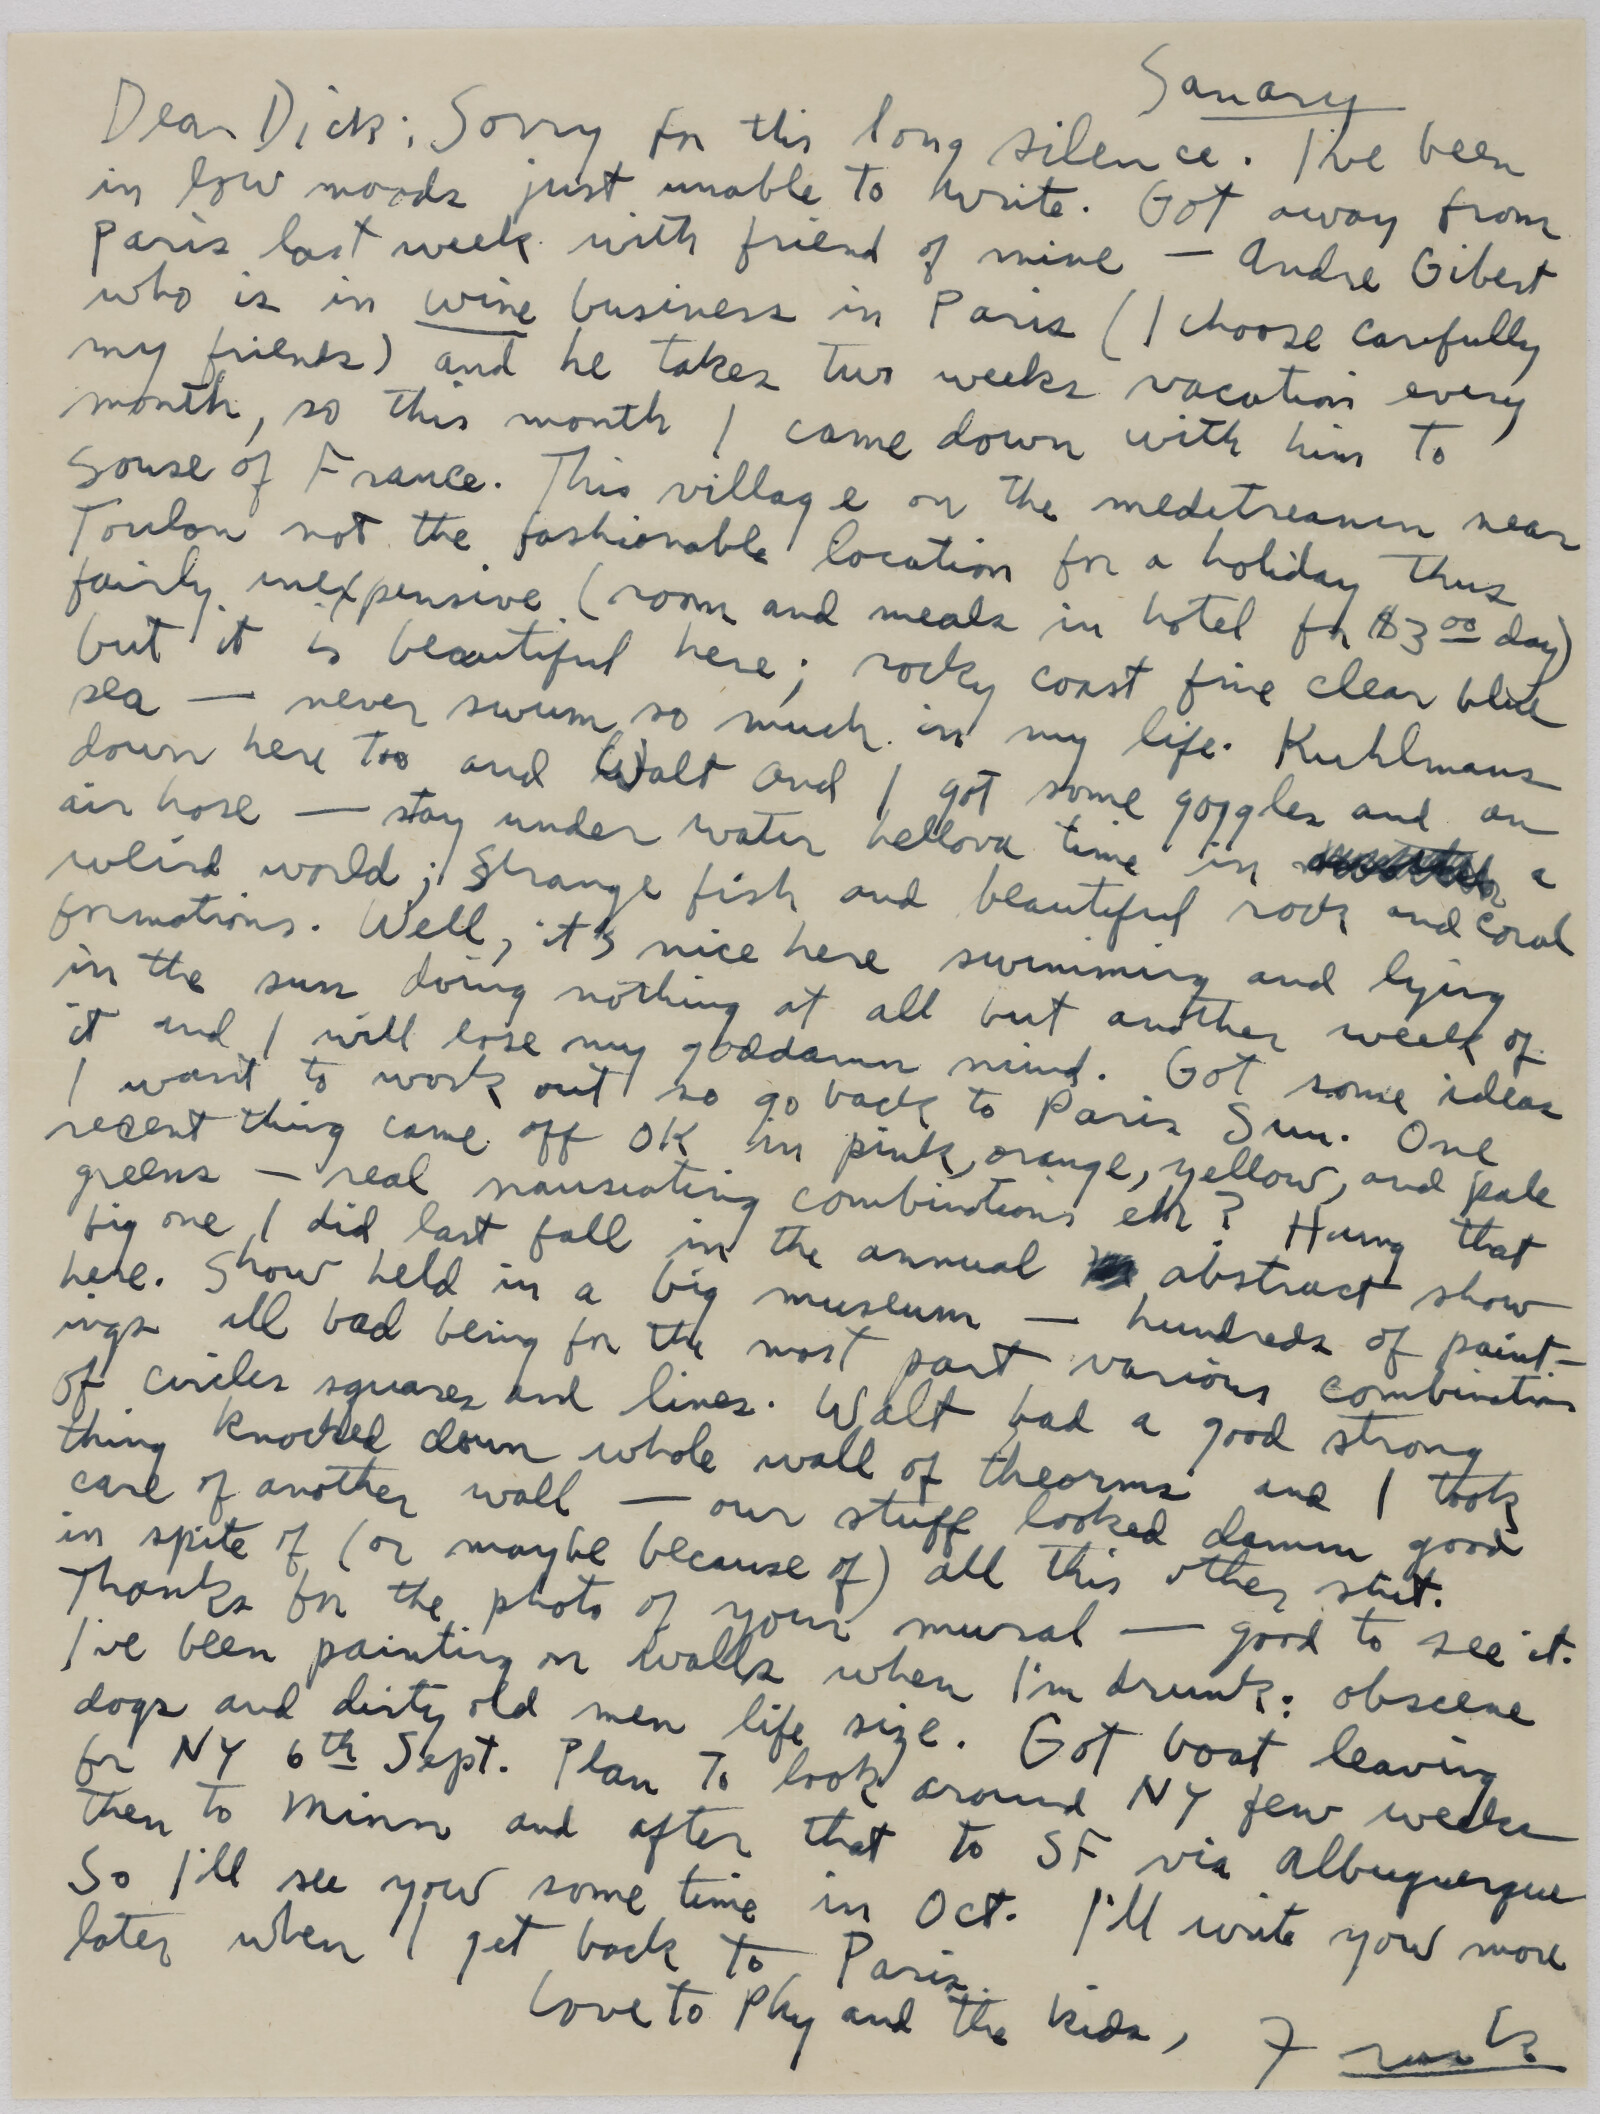 Sanary
Dear Dick; Sorry for this long silence. I've been
in low moods just unable to write. Got away from
Paris last week with friend of mine — Andre Gibert
who is in wine business in Paris (I choose carefully
my friends) and he takes two weeks vacation every
month, so this month I came down with him to
Souse of France. This village on the meditreanen near
Toulon not the fashionable location for a holiday thus
fairly inexpensive (room and meals in hotel for $3 00 day)
but it is beautiful here; rocky coast fine clear blue
sea — never swum so much in my life. Kuhlmans
down here too and Walt and I got some goggles and an
air hose — stay under water hellova time in a
weird world; strange fish and beautiful rock and coral
formations. Well, it's nice here swimming and lying
in the sun doing nothing at all but another week of
it and I will lose my goddamn mind. Got some ideas
I want to work out so go back to Paris Sun. One
recent thing came off OK in pink, orange, yellow, and pale
greens — real nauseating combinations eh? Hung that
big one I did last fall in the annual abstract show
here. Show held in a big museum — hundreds of paint-
ings all bad being for the most part various combinations
of circles squares and lines. Walt had a good strong
thing knocked down whole wall of theorms and I took
care of another wall — our stuff looked damm good
in spite of (or maybe because of) all this other shit.
Thanks for the photo of your mural — good to see it.
I've been painting on walls when I'm drunk: obscene
dogs and dirty old men life size. Got boat leaving
for NY 6th Sept. Plan to look around NY few weeks
then to Minn and after that to SF via Albuquerque
So I'll see you some time in Oct. I'll write you more
later when I get back to Paris.
Love to Phy and the kids,
Frank